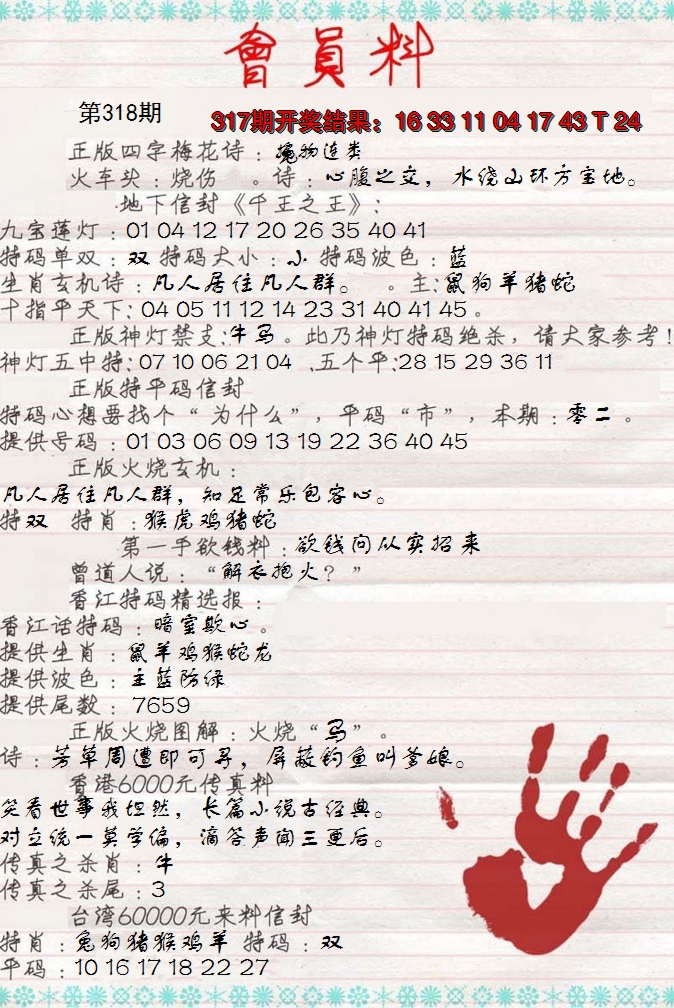 會員料
第318期
317期开奖结果：16 33 11 04 17 43 T 24
正版四字梅花诗：物连类
火车头：烧伤 。诗：心腹之交，水绕山环方宝地。
地下信封《千王之王》：
九宝莲灯：01 04 12 17 20 26 35 40 41
特码单双：双 特码大小：小 特码波色：蓝
生肖玄机诗：凡人居住凡人群。 。主：鼠狗羊猪蛇
十指平天下：04 05 11 12 14 23 31 40 41 45。
正版神灯禁支：牛马。此乃神灯特码绝杀，请大家参考！
神灯五中特：07 10 06 21 04 .五个平：28 15 29 36 11
正版特平码信封
特码心想要找个“为什么”，平码“市”，本期：零二。
提供号码：01 03 06 09 13 19 22 36 40 45
正版火烧玄机：
凡人居住凡人群，知足常乐包容心。
特双 特肖：猴虎鸡猪蛇
第一手欲钱料：欲钱问从实招来
曾道人说：“解衣抱火？”
香江特码精选报：
香江话特码：暗室欺心。
提供生肖：鼠羊鸡猴蛇龙
提供波色：主蓝防绿
提供尾数：7659
正版火烧图解：火烧“马”。
诗：芳草周遭即可寻，屏蔽钓鱼叫爹娘。
香港6000元传真料
笑看世事我坦然，长篇小说古经典。
对立统一莫学偏，滴答声闻三更后。
传真之杀肖：牛
传真之杀尾：3
台湾60000元来料信封
特肖：兔狗猪猴鸡羊 特码：双
平码：10 16 17 18 22 27